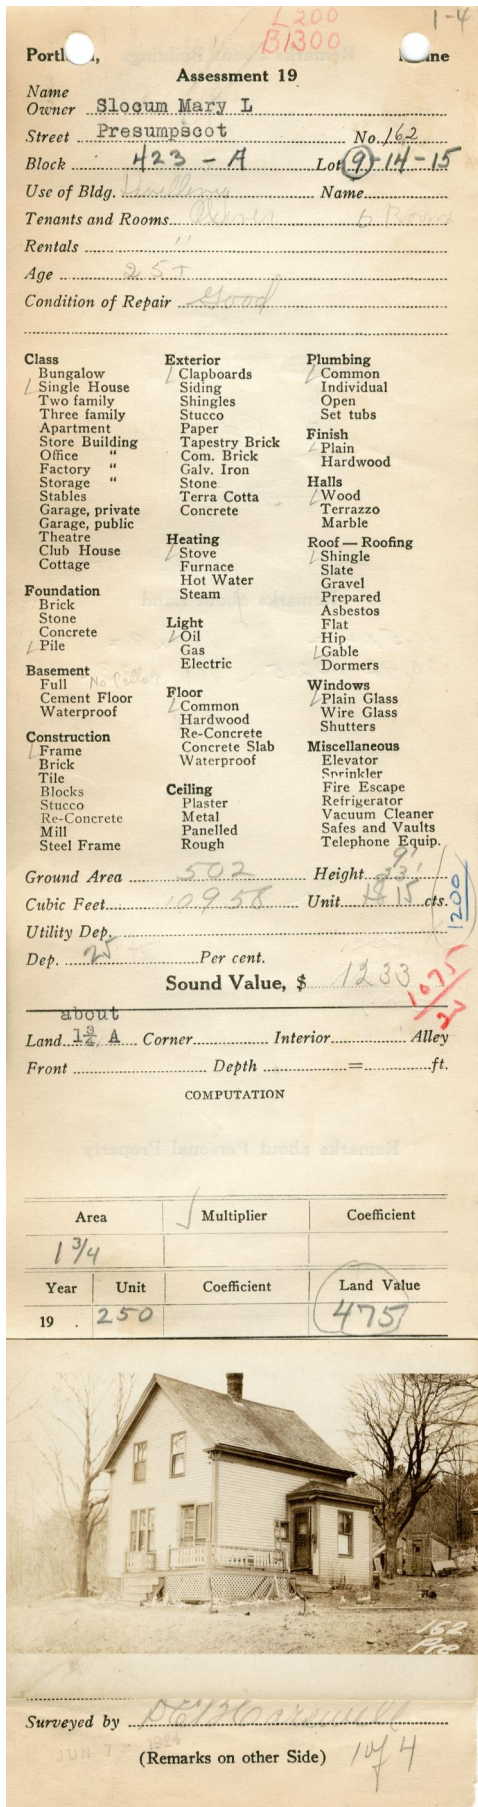 L200
B1300
1-4
Portl , ne
Assessment 19
Name
Owner Slocum Mary L
Street Presumpscot No. 162
Block 423 - A Lot 9-14-15
Use of Bldg. Dwelling Name
Tenants and Rooms Owner 6 Rooms
Rentals "
Age 25+
Condition of Repair Good
Class
Bungalow
/ Single House
Two family
Three family
Apartment
Store Building
Office "
Factory "
Storage "
Stables
Garage, private
Garage, public
Theatre
Club House
Cottage
Foundation
Brick
Stone
Concrete
/ Pile
Basement
Full No Cellar
Cement Floor
Waterproof
Construction
/ Frame
Brick
Tile
Blocks
Stucco
Re-Concrete
Mill
Steel Frame
Exterior
/ Clapboards
Siding
Shingles
Stucco
Paper
Tapestry Brick
Com. Brick
Galv. Iron
Stone
Terra Cotta
Concrete
Heating
/ Stove
Furnace
Hot Water
Steam
Light
/ Oil
Gas
Electric
Floor
/ Common
Hardwood
Re-Concrete
Concrete Slab
Waterproof
Ceiling
Plaster
Metal
Panelled
Rough
Plumbing
/ Common
Individual
Open
Set tubs
Finish
/ Plain
Hardwood
Halls
/ Wood
Terrazzo
Marble
Roof — Roofing
/ Shingle
Slate
Gravel
Prepared
Asbestos
Flat
Hip
/ Gable
Dormers
Windows
/ Plain Glass
Wire Glass
Shutters
Miscellaneous
Elevator
Sprinkler
Fire Escape
Refrigerator
Vacuum Cleaner
Safes and Vaults
Telephone Equip.
9'
Ground Area 502 Height 33'
Cubic Feet 10958 Unit 15 cts.
1200
Utility Dep.
Dep. 25 Per cent.
Sound Value, $ 1233
1075
about
Land 1 3/4 A Corner Interior Alley
Front Depth = ft.
COMPUTATION
Area Multiplier Coefficient
1 3/4
Year Unit Coefficient Land Value
19 . 250 475
162
Pre
Surveyed by
JUN 7 - 1924
(Remarks on other Side) 1 of 4